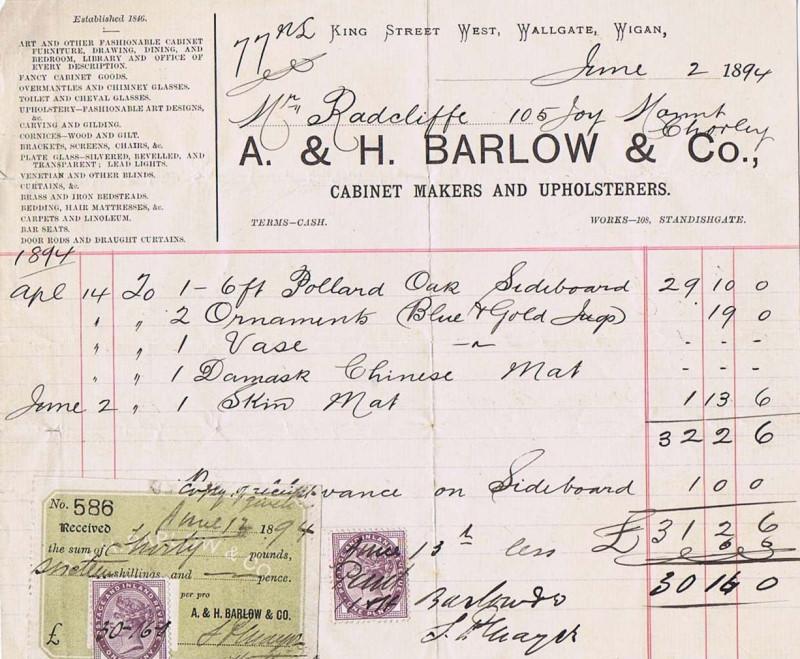 Established 1846.
ART AND OTHER FASHIONABLE CABINET
FURNITURE, DRAWING, DINING, AND
BEDROOM, LIBRARY AND OFFICE OF
EVERY DESCRIPTION.
FANCY CABINET GOODS.
OVERMANTLES AND CHIMNEY GLASSES.
TOILET AND CHEVAL GLASSES.
UPHOLSTERY—FASHIONABLE ART DESIGNS,
&c.
CARVING AND GILDING.
CORNICES—WOOD AND GILT.
BRACKETS, SCREENS, CHAIRS, &c.
PLATE GLASS—SILVERED, BEVELLED, AND
TRANSPARENT; LEAD LIGHTS.
VENETIAN AND OTHER BLINDS.
CURTAINS, &c.
BRASS AND IRON BEDSTEADS.
BEDDING, HAIR MATTRESSES, &c.
CARPETS AND LINOLEUM.
BAR SEATS.
DOOR RODS AND DRAUGHT CURTAINS.
KING STREET WEST, WALLGATE, WIGAN,
June 2 1894
Radcliffe 105 Joy Mount
Chorley
A. & H. BARLOW & Co.,
CABINET MAKERS AND UPHOLSTERERS.
TERMS—CASH. WORKS—108, STANDISHGATE.
1894
Apl 14 To 1 - 6ft Pollard Oak Sideboard 29 10 0
" " 2 Ornaments (Blue & Gold Jugs) 19 0
" " 1 Vase - - -
" " 1 Damask Chinese Mat - - -
June 2 " 1 Skin Mat 1 13 6
32 2 6
Copy of receipt
given
vance on Sideboard 1 0 0
£ 31 2 6
June 13th less 6 6
30 16 0
Paid
Barlow & Co
No. 586
June 13 1894
Received
the sum of Thirty pounds,
sixteen shillings and — pence.
BARLOW & CO
per pro
A. & H. BARLOW & CO.
£ 30-16-0